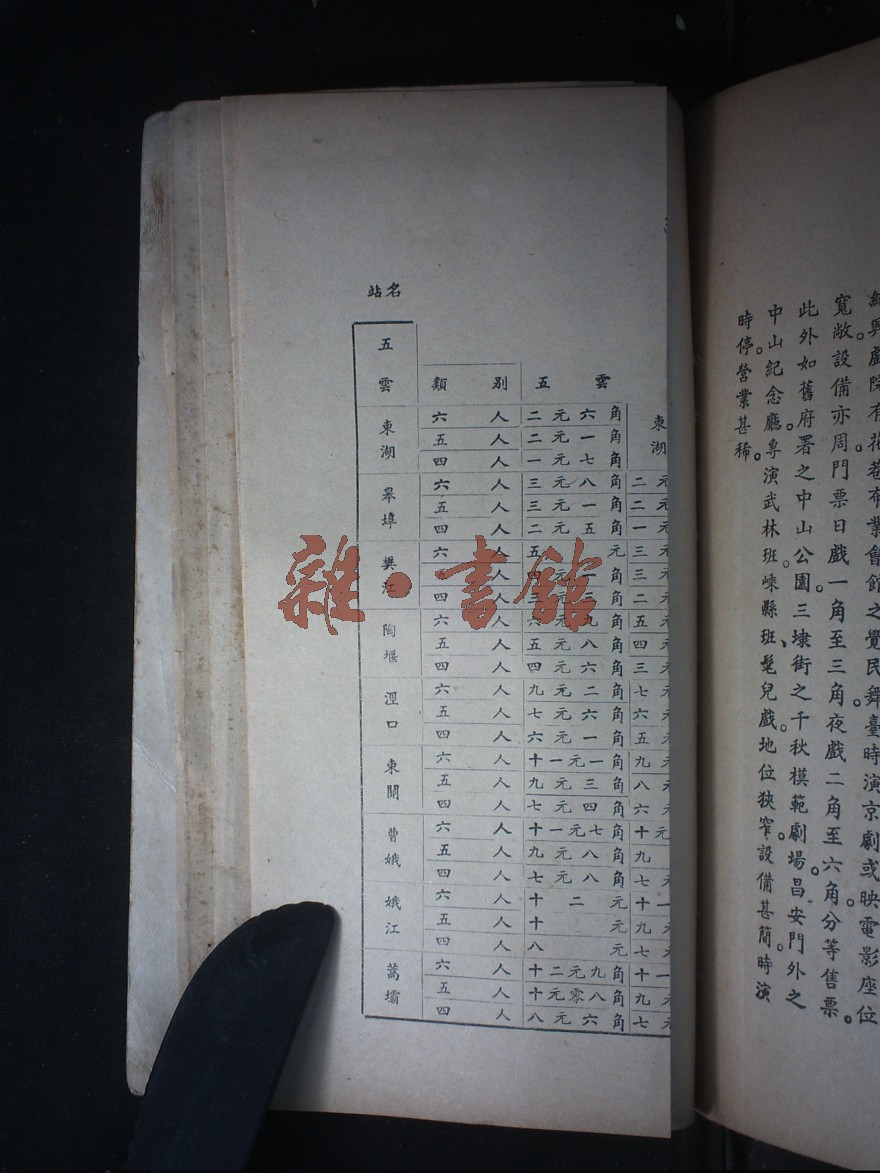 紹興戲院有花巷布業會館之覺民舞臺時演京劇或映電影座位
寬敞設備亦周門票日戲一角至三角夜戲二角至六角分等售票。
此外如舊府署之中山公園三埭街之千秋模範劇場昌安門外之
中山紀念廳專演武林班嵊縣班、髦兒戲。地位狹窄。設備甚簡時演
時停。營業甚稀。
站名
五雲 類別 五雲
東湖 六人 二元六角 東湖
五人 二元一角
四人 一元七角
皋埠 六人 三元八角 二元
五人 三元一角 二元
四人 二元五角 一元
樊江 六人 五元 三元
人 四元一角 三元
四人 三元三角 二元
陶堰 六人 六元九角 五元
五人 五元八角 四元
四人 四元六角 三元
涇口 六人 九元二角 七元
五人 七元六角 六元
四人 六元一角 五元
東關 六人 十一元一角 九元
五人 九元三角 八元
四人 七元四角 六元
曹娥 六人 十一元七角 十元
五人 九元八角 九
四人 七元八角 七元
娥江 六人 十二元 十一
五人 十元 九元
四人 八元 七元
蒿壩 六人 十二元九角 十一
五人 十元零八角 九元
四人 八元六角 七元
雜·書館